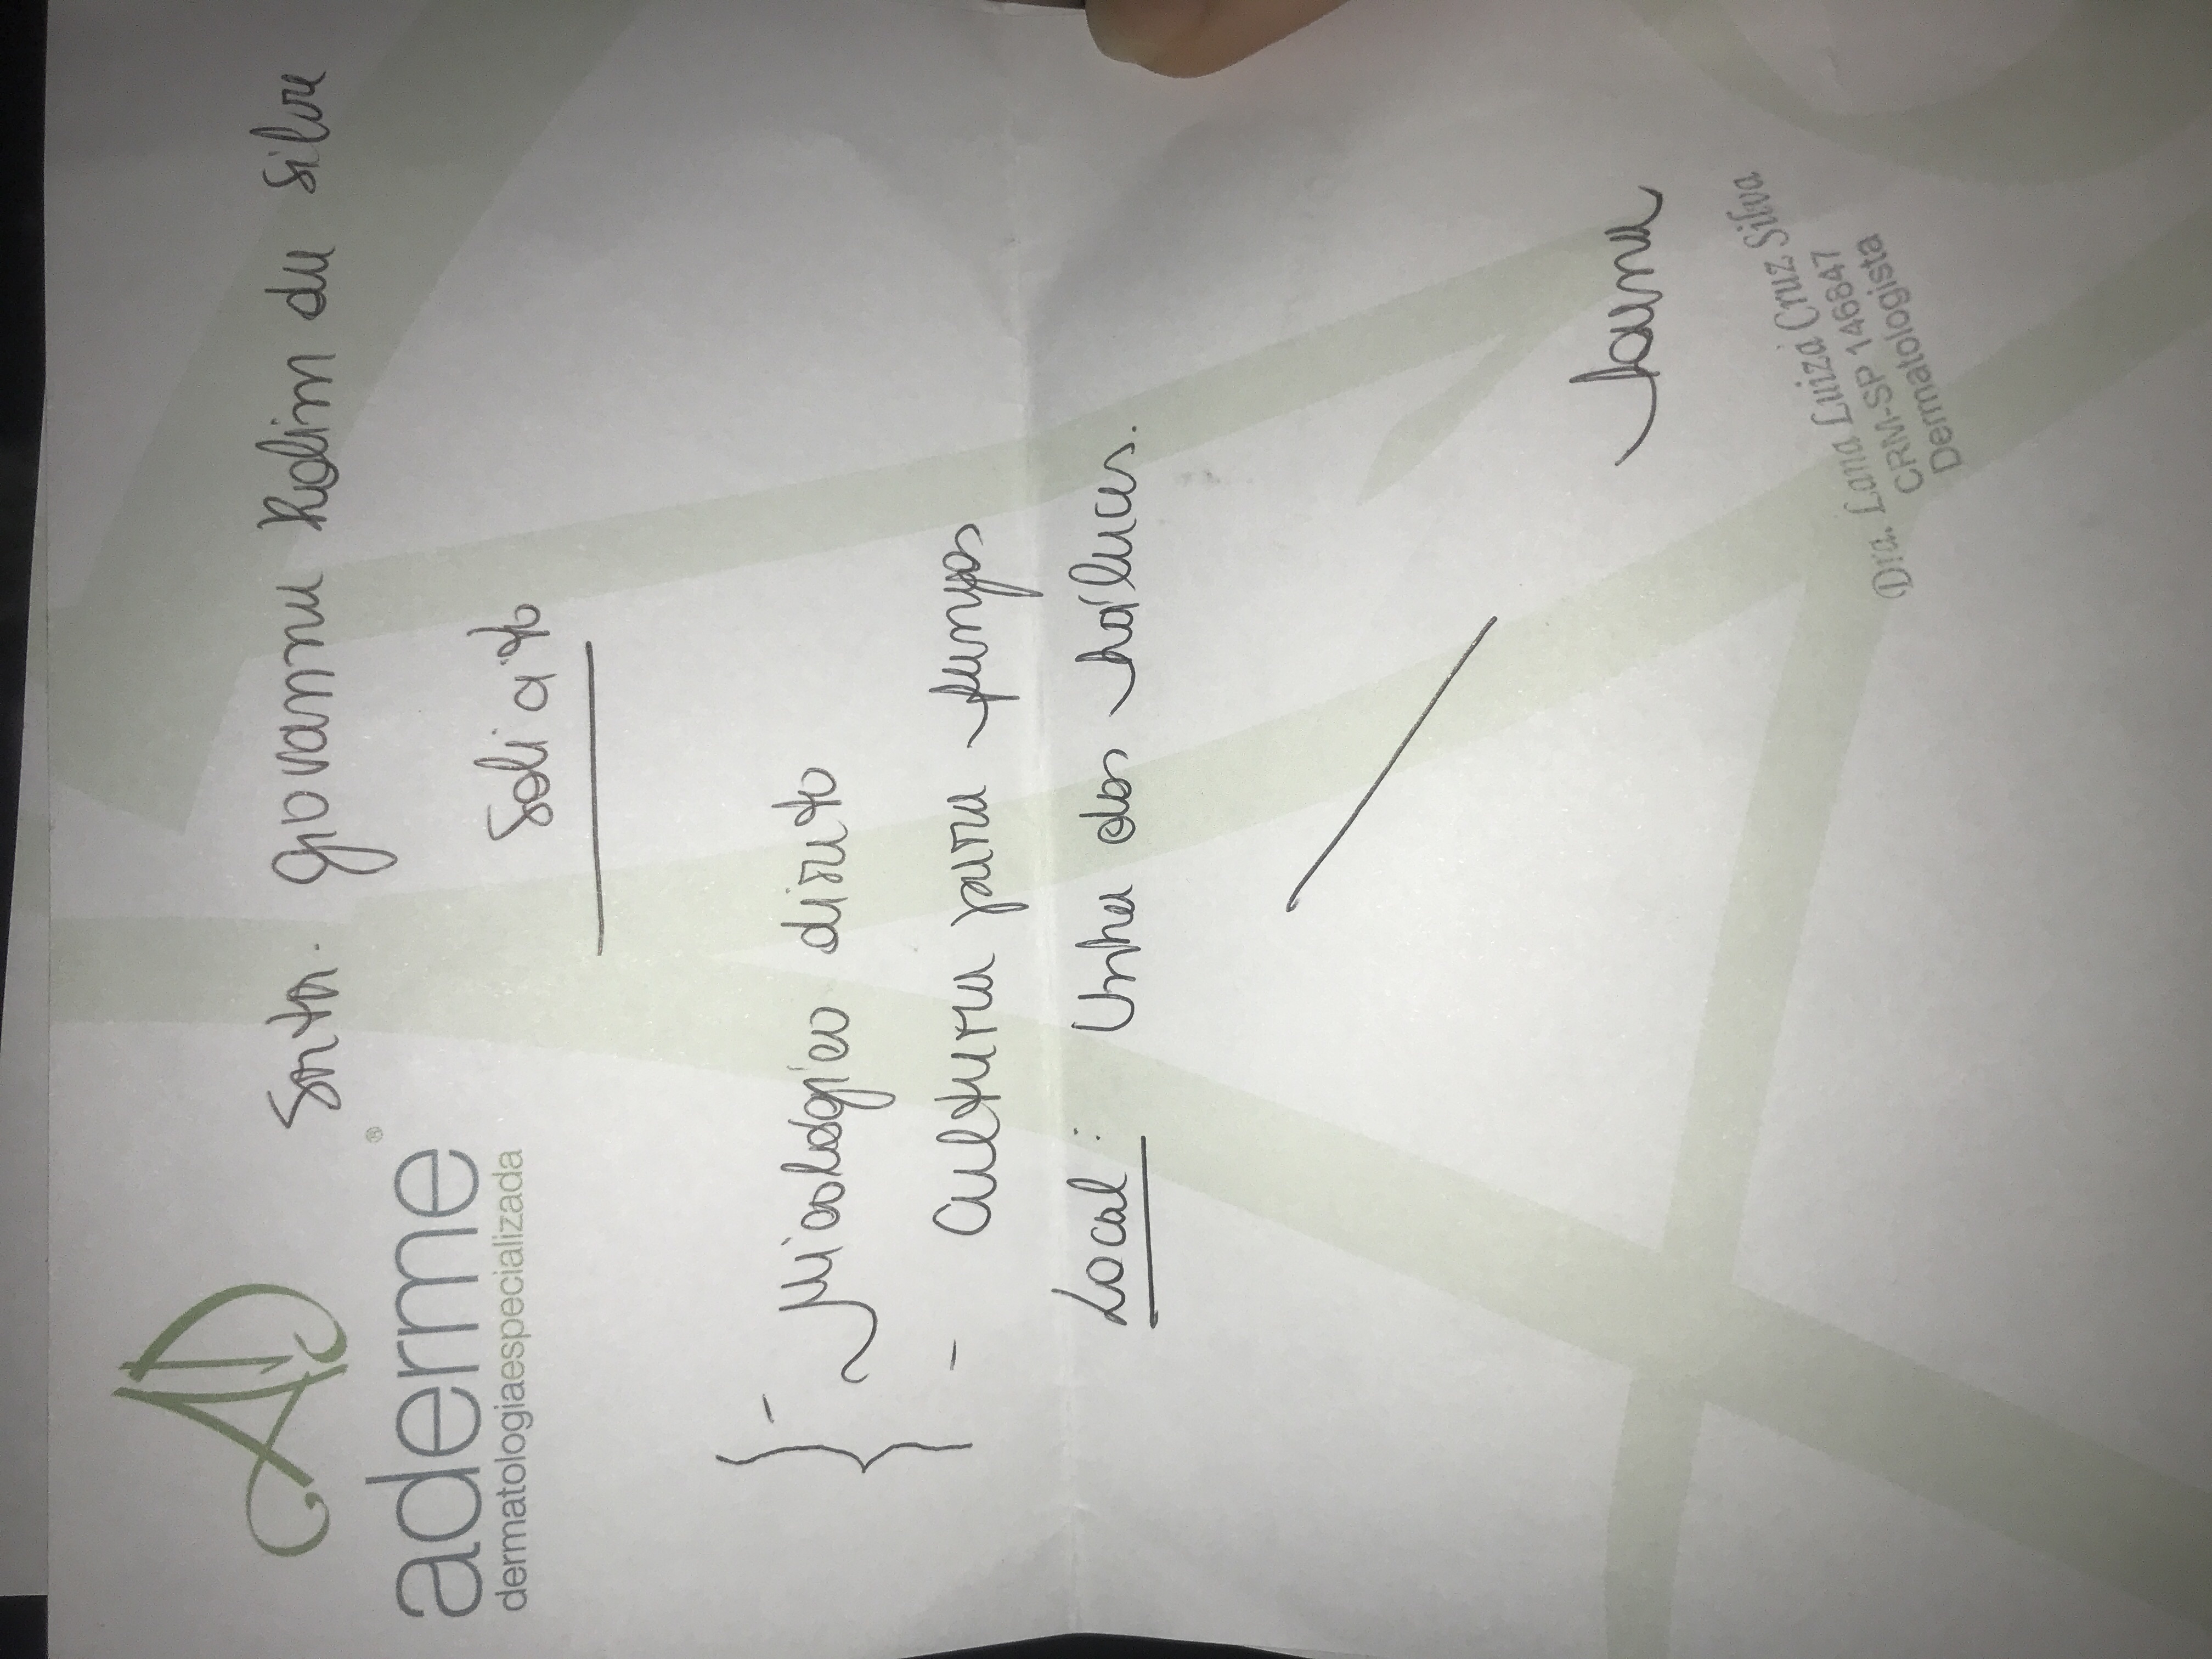 AD
aderme®
dermatologiaespecializada
Srta. Giovanna Rolim da Silva
Solicito
- Micológico direto
- Cultura para fungos
Local: Unha dos háluces.
Dra. Lana Luiza Cruz Silva
CRM-SP 146847
Dermatologista